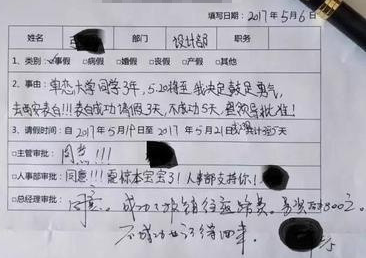 填写日期：2017年5月6日
姓名 部门 设计部 职务
1、类别 事假 □病假 □婚假 □丧假 □产假 □其他
2、事由：单恋大学同学3年，5.20将至，我决定鼓足勇气，
去西安表白!!!表白成功请假3天，不成功5天，望领导批准！
3、请假时间：自2017年5月19日至2017年5月21日或累计给5天
□主管审批：同意!!!
□人事部审批：同意!!!震惊本宝宝了！人事部支持你！
□总经理审批：同意。成功了报销经验给费。
不成功也记得回来。